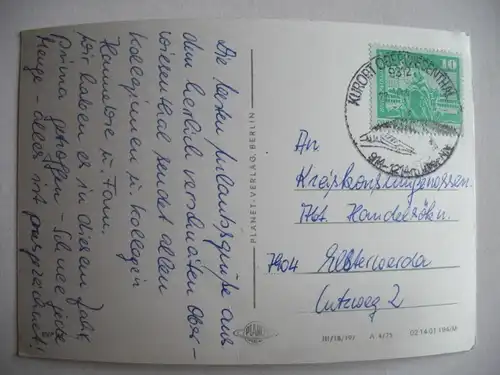 Die besten Urlaubsgrüße aus
dem herrlich verschneiten Ober-
wiesenthal sendet allen
Kolleginnen u. Kollegen
Hannelore u. Fam.
Wir haben es in diesem Jahr
prima getroffen – Schnee jede
Menge – alles ist
PLANET-VERLAG, BERLIN
PLANET
KURORT OBERWIESENTHAL
9312
10
An
Kreiskonsumgenossen.
Abt. Handelsökn.
7904 Elsterwerda
Lutzweg 2
III/18/197 A 4/75 02 14 01 194/M